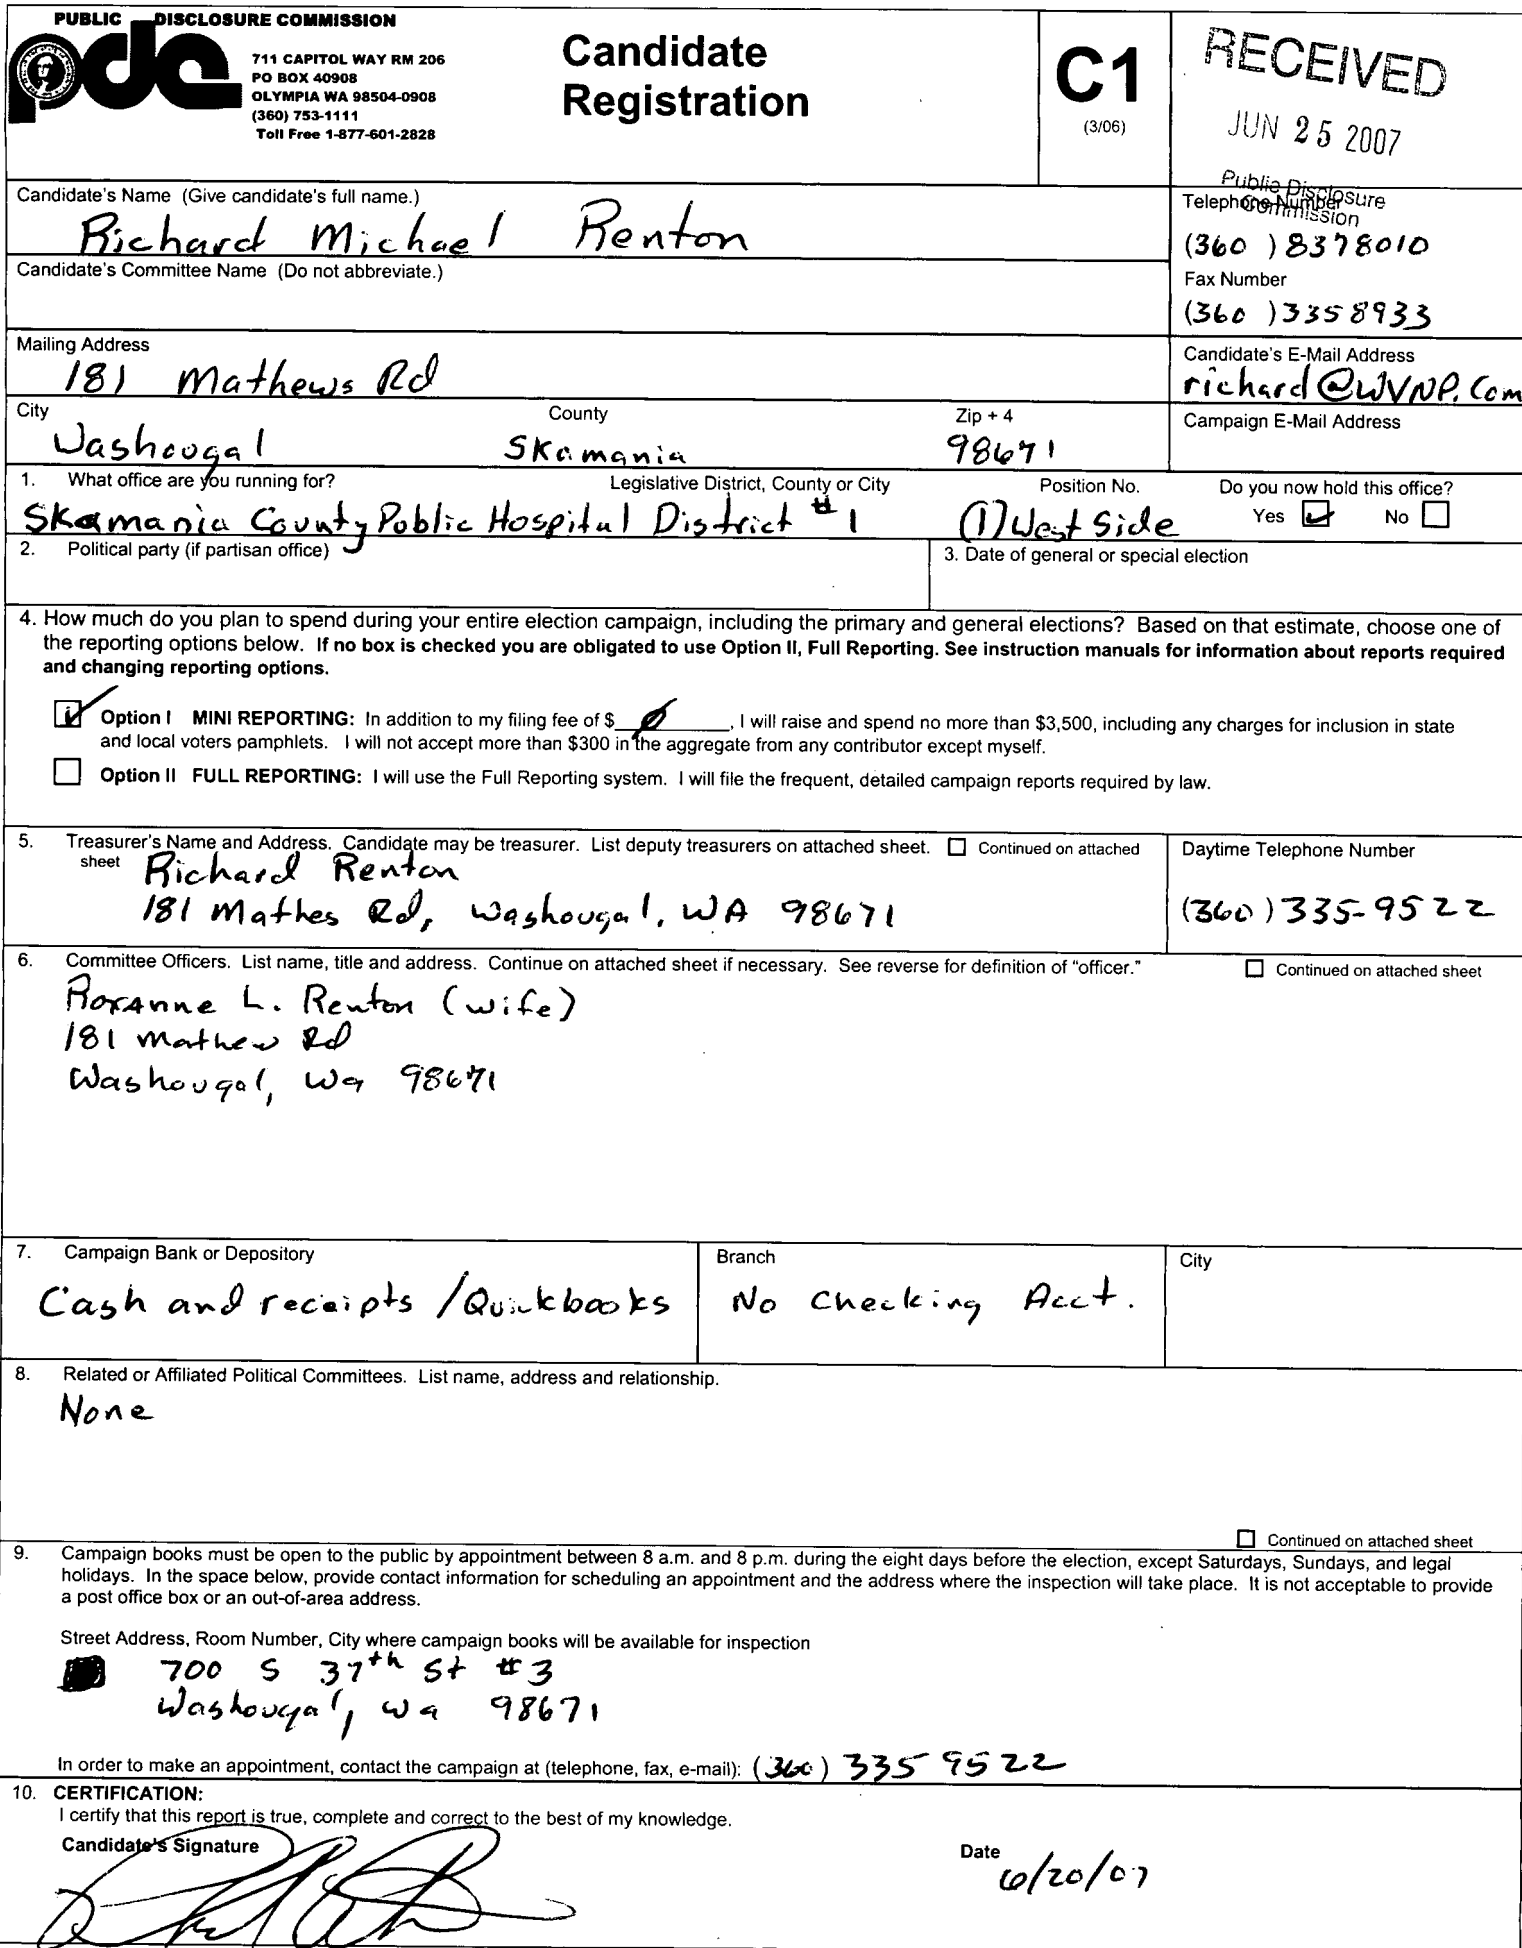 PUBLIC DISCLOSURE COMMISSION
pdc
711 CAPITOL WAY RM 206
PO BOX 40908
OLYMPIA WA 98504-0908
(360) 753-1111
Toll Free 1-877-601-2828
Candidate
Registration
C1
(3/06)
RECEIVED
JUN 25 2007
Public Disclosure
Commission
Candidate's Name (Give candidate's full name.)
Richard Michael Renton
Telephone Number
(360 ) 8378010
Candidate's Committee Name (Do not abbreviate.)
Fax Number
(360 ) 3358933
Mailing Address
181 Mathews Rd
Candidate's E-Mail Address
richard@WVNP.Com
City County Zip + 4
Washougal Skamania 98671
Campaign E-Mail Address
1. What office are you running for? Legislative District, County or City Position No. Do you now hold this office?
Skamania County Public Hospital District #1 (1) West Side Yes No
2. Political party (if partisan office) 3. Date of general or special election
4. How much do you plan to spend during your entire election campaign, including the primary and general elections? Based on that estimate, choose one of
the reporting options below. If no box is checked you are obligated to use Option II, Full Reporting. See instruction manuals for information about reports required
and changing reporting options.
Option I MINI REPORTING: In addition to my filing fee of $ 0 , I will raise and spend no more than $3,500, including any charges for inclusion in state
and local voters pamphlets. I will not accept more than $300 in the aggregate from any contributor except myself.
Option II FULL REPORTING: I will use the Full Reporting system. I will file the frequent, detailed campaign reports required by law.
5. Treasurer's Name and Address. Candidate may be treasurer. List deputy treasurers on attached sheet. Continued on attached
sheet
Richard Renton
181 Mathes Rd, Washougal, WA 98671
Daytime Telephone Number
(360) 335-9522
6. Committee Officers. List name, title and address. Continue on attached sheet if necessary. See reverse for definition of "officer." Continued on attached sheet
Roxanne L. Renton (wife)
181 Mathew Rd
Washougal, Wa 98671
7. Campaign Bank or Depository Branch City
Cash and receipts /Quickbooks No Checking Acct.
8. Related or Affiliated Political Committees. List name, address and relationship.
None
Continued on attached sheet
9. Campaign books must be open to the public by appointment between 8 a.m. and 8 p.m. during the eight days before the election, except Saturdays, Sundays, and legal
holidays. In the space below, provide contact information for scheduling an appointment and the address where the inspection will take place. It is not acceptable to provide
a post office box or an out-of-area address.
Street Address, Room Number, City where campaign books will be available for inspection
700 S 37th St #3
Washougal, wa 98671
In order to make an appointment, contact the campaign at (telephone, fax, e-mail): (360) 335 9522
10. CERTIFICATION:
I certify that this report is true, complete and correct to the best of my knowledge.
Candidate's Signature Date
6/20/07